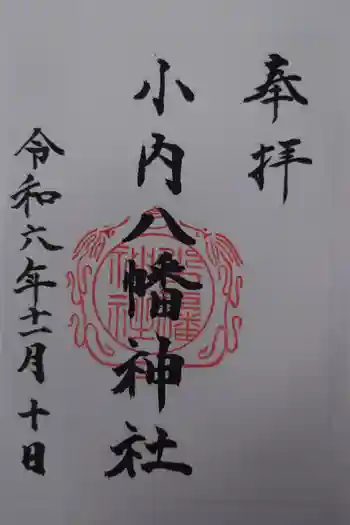 奉拝
小内八幡神社
令和六年十一月十日